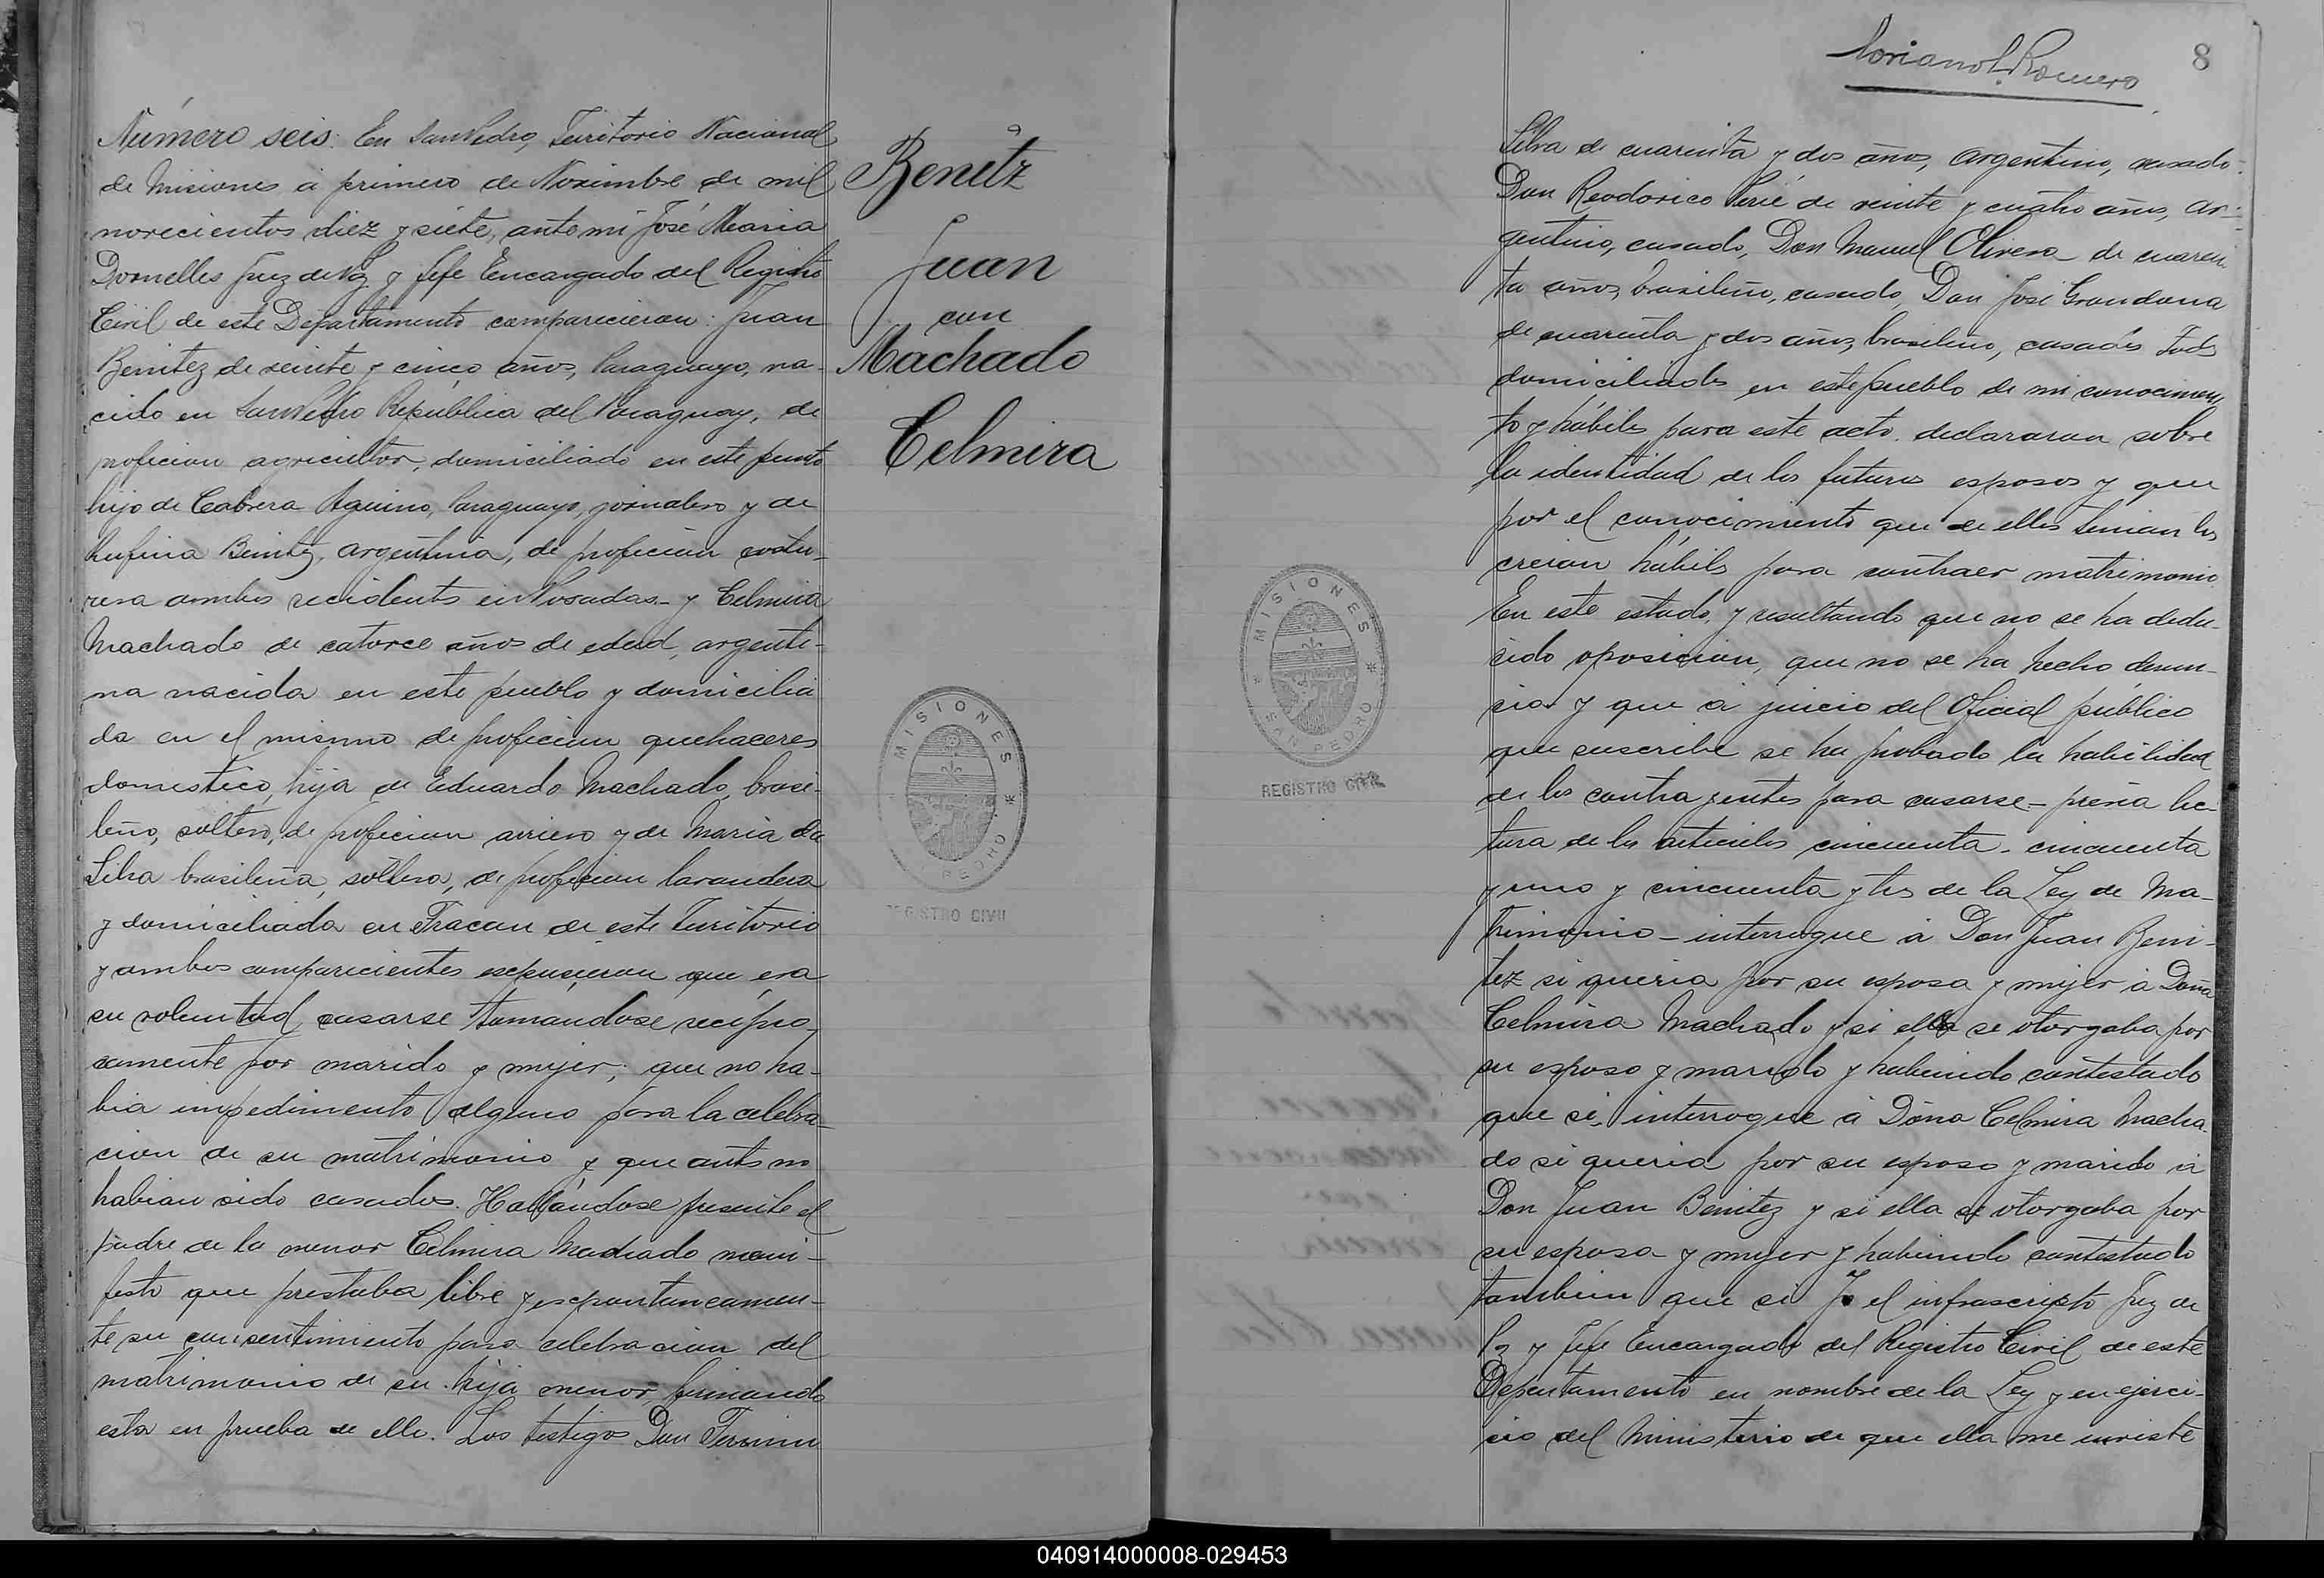 Número seis. En San Pedro, Territorio Nacional
de Misiones á primero de Noviembre de mil
novecientos diez y siete, ante mi José Maria
Dornelles Juez de Paz y Jefe Encargado del Registro
Civil de este Departamento comparicieron: Juan
Benitez de veinte y cinco años, Paraguayo, na-
cido en San Pedro Republica del Paraguay, de
profecion agricultor, domiciliado en este punto
hijo de Cabrera Aquino, Paraguayo, jornalero y de
Rufina Benitez, argentina, de profecion costu-
rera ambos recidents en Posadas - y Celmira
Machado de catorce años de edad, argenti-
na nacida en este pueblo y domicilia
da en el mismo de profecion quehaceres
domestico, hija de Eduardo Machado, brasi-
leño, soltero, de profecion arriero y de Maria da
Silva brasileña, soltera, de profecion lavandera
y domiciliada en Fracan de este Territorio
y ambos comparicientes espusieron que era
su voluntad casarse tomandose recipro-
camente por marido y mujer; que no ha-
bia impedimento alguno para la celebra-
cion de su matrimonio y que ants no
habian sido casados. Hallándose presente el
padre de la menor Celmira Machado mani-
festo que prestaba libre y espontaneamen-
te su consentimiento para celebracion del
matrimonio de su hija menor firmando
esta en prueba de ello. Los testigos Don Fermin
Benitz
Juan
con
Machado
Celmira
MISIONES
REGISTRO CIVIL
Romero
8
Silva de cuarenta y dos años, argentino, casado.
Don Reodorico de veinte y cuatro años, ar-
gentino, casado, Don Manuel Olivera de cuaren
ta años, brasileño, casado, Don José Grandona
de cuarenta y dos años, brasileño, casados Tods
domiciliados en este pueblo de mi conocimien
to y hábiles para este acto. declararan sobre
la identidad de los futuros esposos y que
por el conocimiento que de ellos tenian los
creian hábils para contraer matrimonio.
En este estado, y resultando que no se ha dedu-
cido oposicion, que no se ha hecho denun-
cia y que á juicio del Oficial público
que suscribe se ha probado la habilidad
de los contrayentes para casarse - previa lec-
tura de los articulos cincuenta - cincuenta
y uno y cincuenta y tres de la Ley de Ma-
trimonio - interrogue á Don Juan Beni-
tez si queria por su esposa y mujer á Doña
Celmira Machado y si ella se otorgaba por
su esposo y marido y habiendo contestado
que si, interrogue á Doña Celmira Macha-
do si queria por su esposo y marido á
Don Juan Benitez y si ella se otorgaba por
su esposa y mujer y habiendo contestado
tambien que si Yo el infrascripto Juez de
Pz y Jefe Encargado del Registro Civil de este
Departamento en nombre de la Ley y en ejerci-
cio del Ministerio de que ella me inviste
MISIONES
SAN PEDRO
REGISTRO CIVIL
040914000008-029453